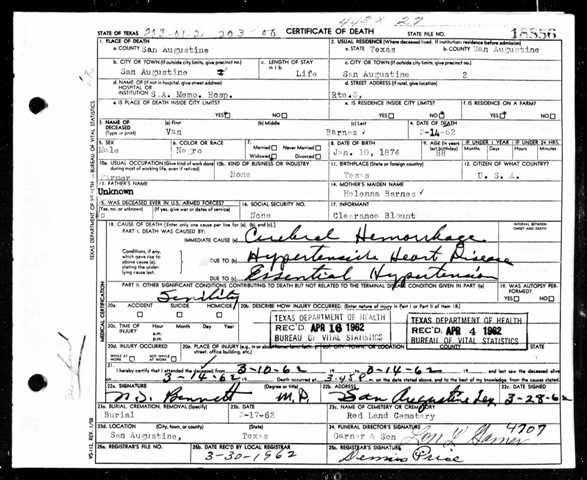 443 X 27
STATE OF TEXAS
CERTIFICATE OF DEATH
STATE FILE NO. 18556
1. PLACE OF DEATH
a. COUNTY San Augustine
2. USUAL RESIDENCE (Where deceased lived. If institution: residence before admission)
a. STATE Texas b. COUNTY San Augustine
b. CITY OR TOWN (If outside city limits, give precinct no.)
San Augustine 2
c. LENGTH OF STAY in 1 b.
Life
c. CITY OR TOWN (If outside city limits, give precinct no.)
San Augustine 2
d. NAME OF (If not in hospital, give street address)
HOSPITAL OR
INSTITUTION S.A. Memo. Hosp.
d. STREET ADDRESS (If rural, give location)
Rte.2.
e. IS PLACE OF DEATH INSIDE CITY LIMITS?
YES NO
e. IS RESIDENCE INSIDE CITY LIMITS?
YES NO
f. IS RESIDENCE ON A FARM?
YES NO
3. NAME OF DECEASED (Type or print)
(a) First Van
(b) Middle
(c) Last Barnes
4. DATE OF DEATH
3-14-62
5. SEX
Male
6. COLOR OR RACE
Negro
7. Married Never Married
Widowed Divorced
8. DATE OF BIRTH
Jan. 10, 1874
9. AGE (In years last birthday)
88
IF UNDER 1 YEAR
Months Days
IF UNDER 24 HRS.
Hours Minutes
10a. USUAL OCCUPATION (Give kind of work done
Farmer
10b. KIND OF BUSINESS OR INDUSTRY
None
11. BIRTHPLACE (State or foreign country)
Texas
12. CITIZEN OF WHAT COUNTRY?
U. S. A.
13. FATHER'S NAME
Unknown
14. MOTHER'S MAIDEN NAME
Helenna Barnes
15. WAS DECEASED EVER IN U.S. ARMED FORCES?
(Yes, no, or unknown) (If yes, give war or dates of service)
No
16. SOCIAL SECURITY NO.
None
17. INFORMANT
Clearance Blount
18. CAUSE OF DEATH [Enter only one cause per line for (a), (b), and (c).]
PART I. DEATH WAS CAUSED BY:
IMMEDIATE CAUSE (a) Cerebral Hemorrhage
INTERVAL BETWEEN ONSET AND DEATH
Conditions, if any, which gave rise to above cause (a), stating the under-lying cause last.
DUE TO (b) Hypertensive Heart Disease
DUE TO (c) Essential Hypertension
PART II. OTHER SIGNIFICANT CONDITIONS CONTRIBUTING TO DEATH BUT NOT RELATED TO THE TERMINAL DISEASE CONDITION GIVEN IN PART I (a)
Senility
19. WAS AUTOPSY PERFORMED?
YES NO
20a. ACCIDENT SUICIDE HOMICIDE
20b. DESCRIBE HOW INJURY OCCURRED. (Enter nature of injury in Part I or Part II of item 18.)
TEXAS DEPARTMENT OF HEALTH
REC'D. APR 16 1962
BUREAU OF VITAL STATISTICS
TEXAS DEPARTMENT OF HEALTH
REC'D. APR 4 1962
BUREAU OF VITAL STATISTICS
20c. TIME OF INJURY
Hour Month Day Year
a.m.
p.m.
20d. INJURY OCCURRED
WHILE AT WORK NOT WHILE AT WORK
COUNTY STATE
21. I hereby certify that I attended the deceased from 3-10-62 to 3-14-62 and last saw the deceased alive
on 3-14-62 Death occurred at 3:45 P m. on the date stated above, and to the best of my knowledge, from the causes stated.
22a. SIGNATURE
Bennett M.D.
22b. ADDRESS
San Augustine Tex
22c. DATE SIGNED
3-28-62
23a. BURIAL, CREMATION, REMOVAL (Specify)
Burial
23b. DATE
3-17-62
23c. NAME OF CEMETERY OR CREMATORY
Red Land Cemetery
23d. LOCATION (City, town, or county) (State)
San Augustine, Texas
24. FUNERAL DIRECTOR'S SIGNATURE
Garner & Son
4707
25a. REGISTRAR'S FILE NO.
25b. DATE REC'D BY LOCAL REGISTRAR
3-30-1962
25c. REGISTRAR'S SIGNATURE
Dennis Price
TEXAS DEPARTMENT OF HEALTH - BUREAU OF VITAL STATISTICS
MEDICAL CERTIFICATION